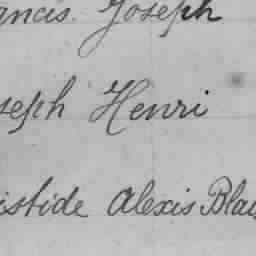 ancis. Joseph
seph Henri
istide Alexis Blai